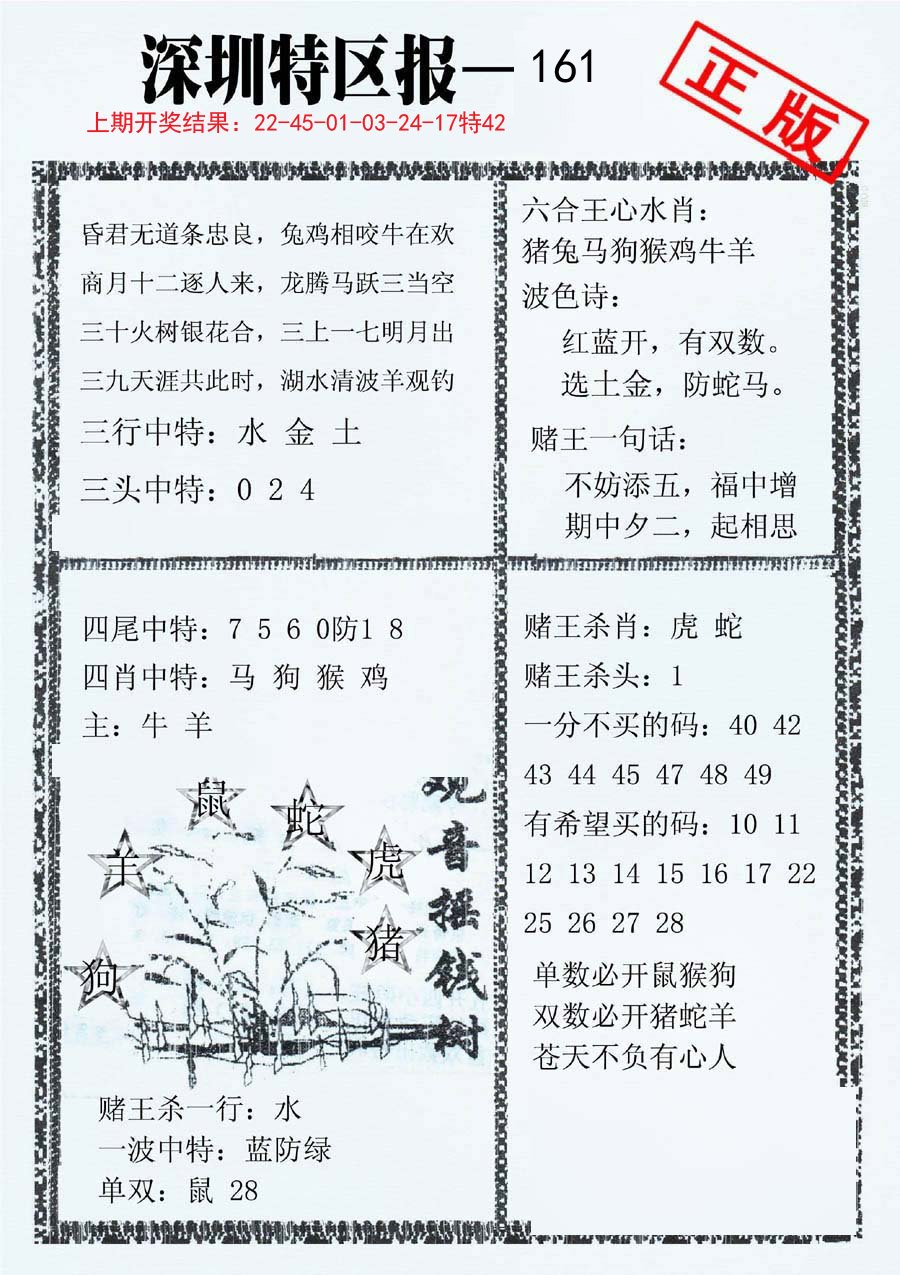 深圳特区报—161
正版
上期开奖结果：22-45-01-03-24-17特42
昏君无道条忠良，兔鸡相咬牛在欢
商月十二逐人来，龙腾马跃三当空
三十火树银花合，三上一七明月出
三九天涯共此时，湖水清波羊观钓
三行中特：水 金 土
三头中特：0 2 4
六合王心水肖：
猪兔马狗猴鸡牛羊
波色诗：
红蓝开，有双数。
选土金，防蛇马。
赌王一句话：
不妨添五，福中增
期中夕二，起相思
四尾中特：7 5 6 0防1 8
四肖中特：马 狗 猴 鸡
主：牛 羊
鼠
蛇
羊
虎
猪
狗
观音摇钱树
赌王杀一行：水
一波中特：蓝防绿
单双：鼠 28
赌王杀肖：虎 蛇
赌王杀头：1
一分不买的码：40 42
43 44 45 47 48 49
有希望买的码：10 11
12 13 14 15 16 17 22
25 26 27 28
单数必开鼠猴狗
双数必开猪蛇羊
苍天不负有心人